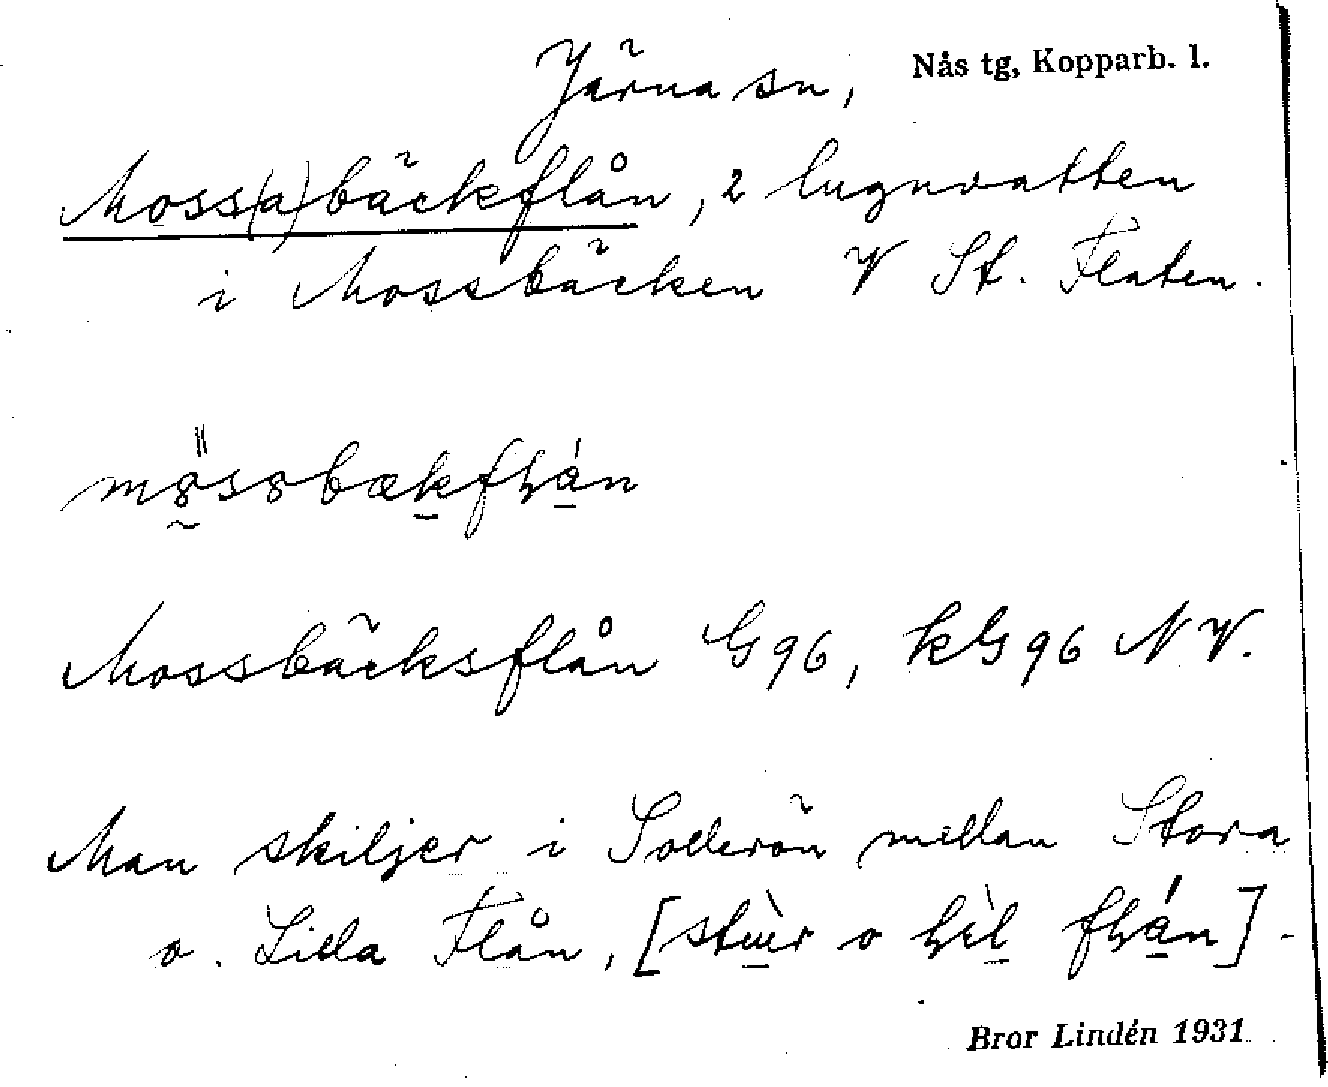 Järna sn, Nås tg, Kopparb. l.
Moss(a)bäckflån, 2 lugnvatten
i Mossbäcken V St. Flaten.
Mossbäcksflån G96, kG96 NV.
Man skiljer i Solleron mellan Stora
o. Lilla Flån,
Bror Lindén 1931